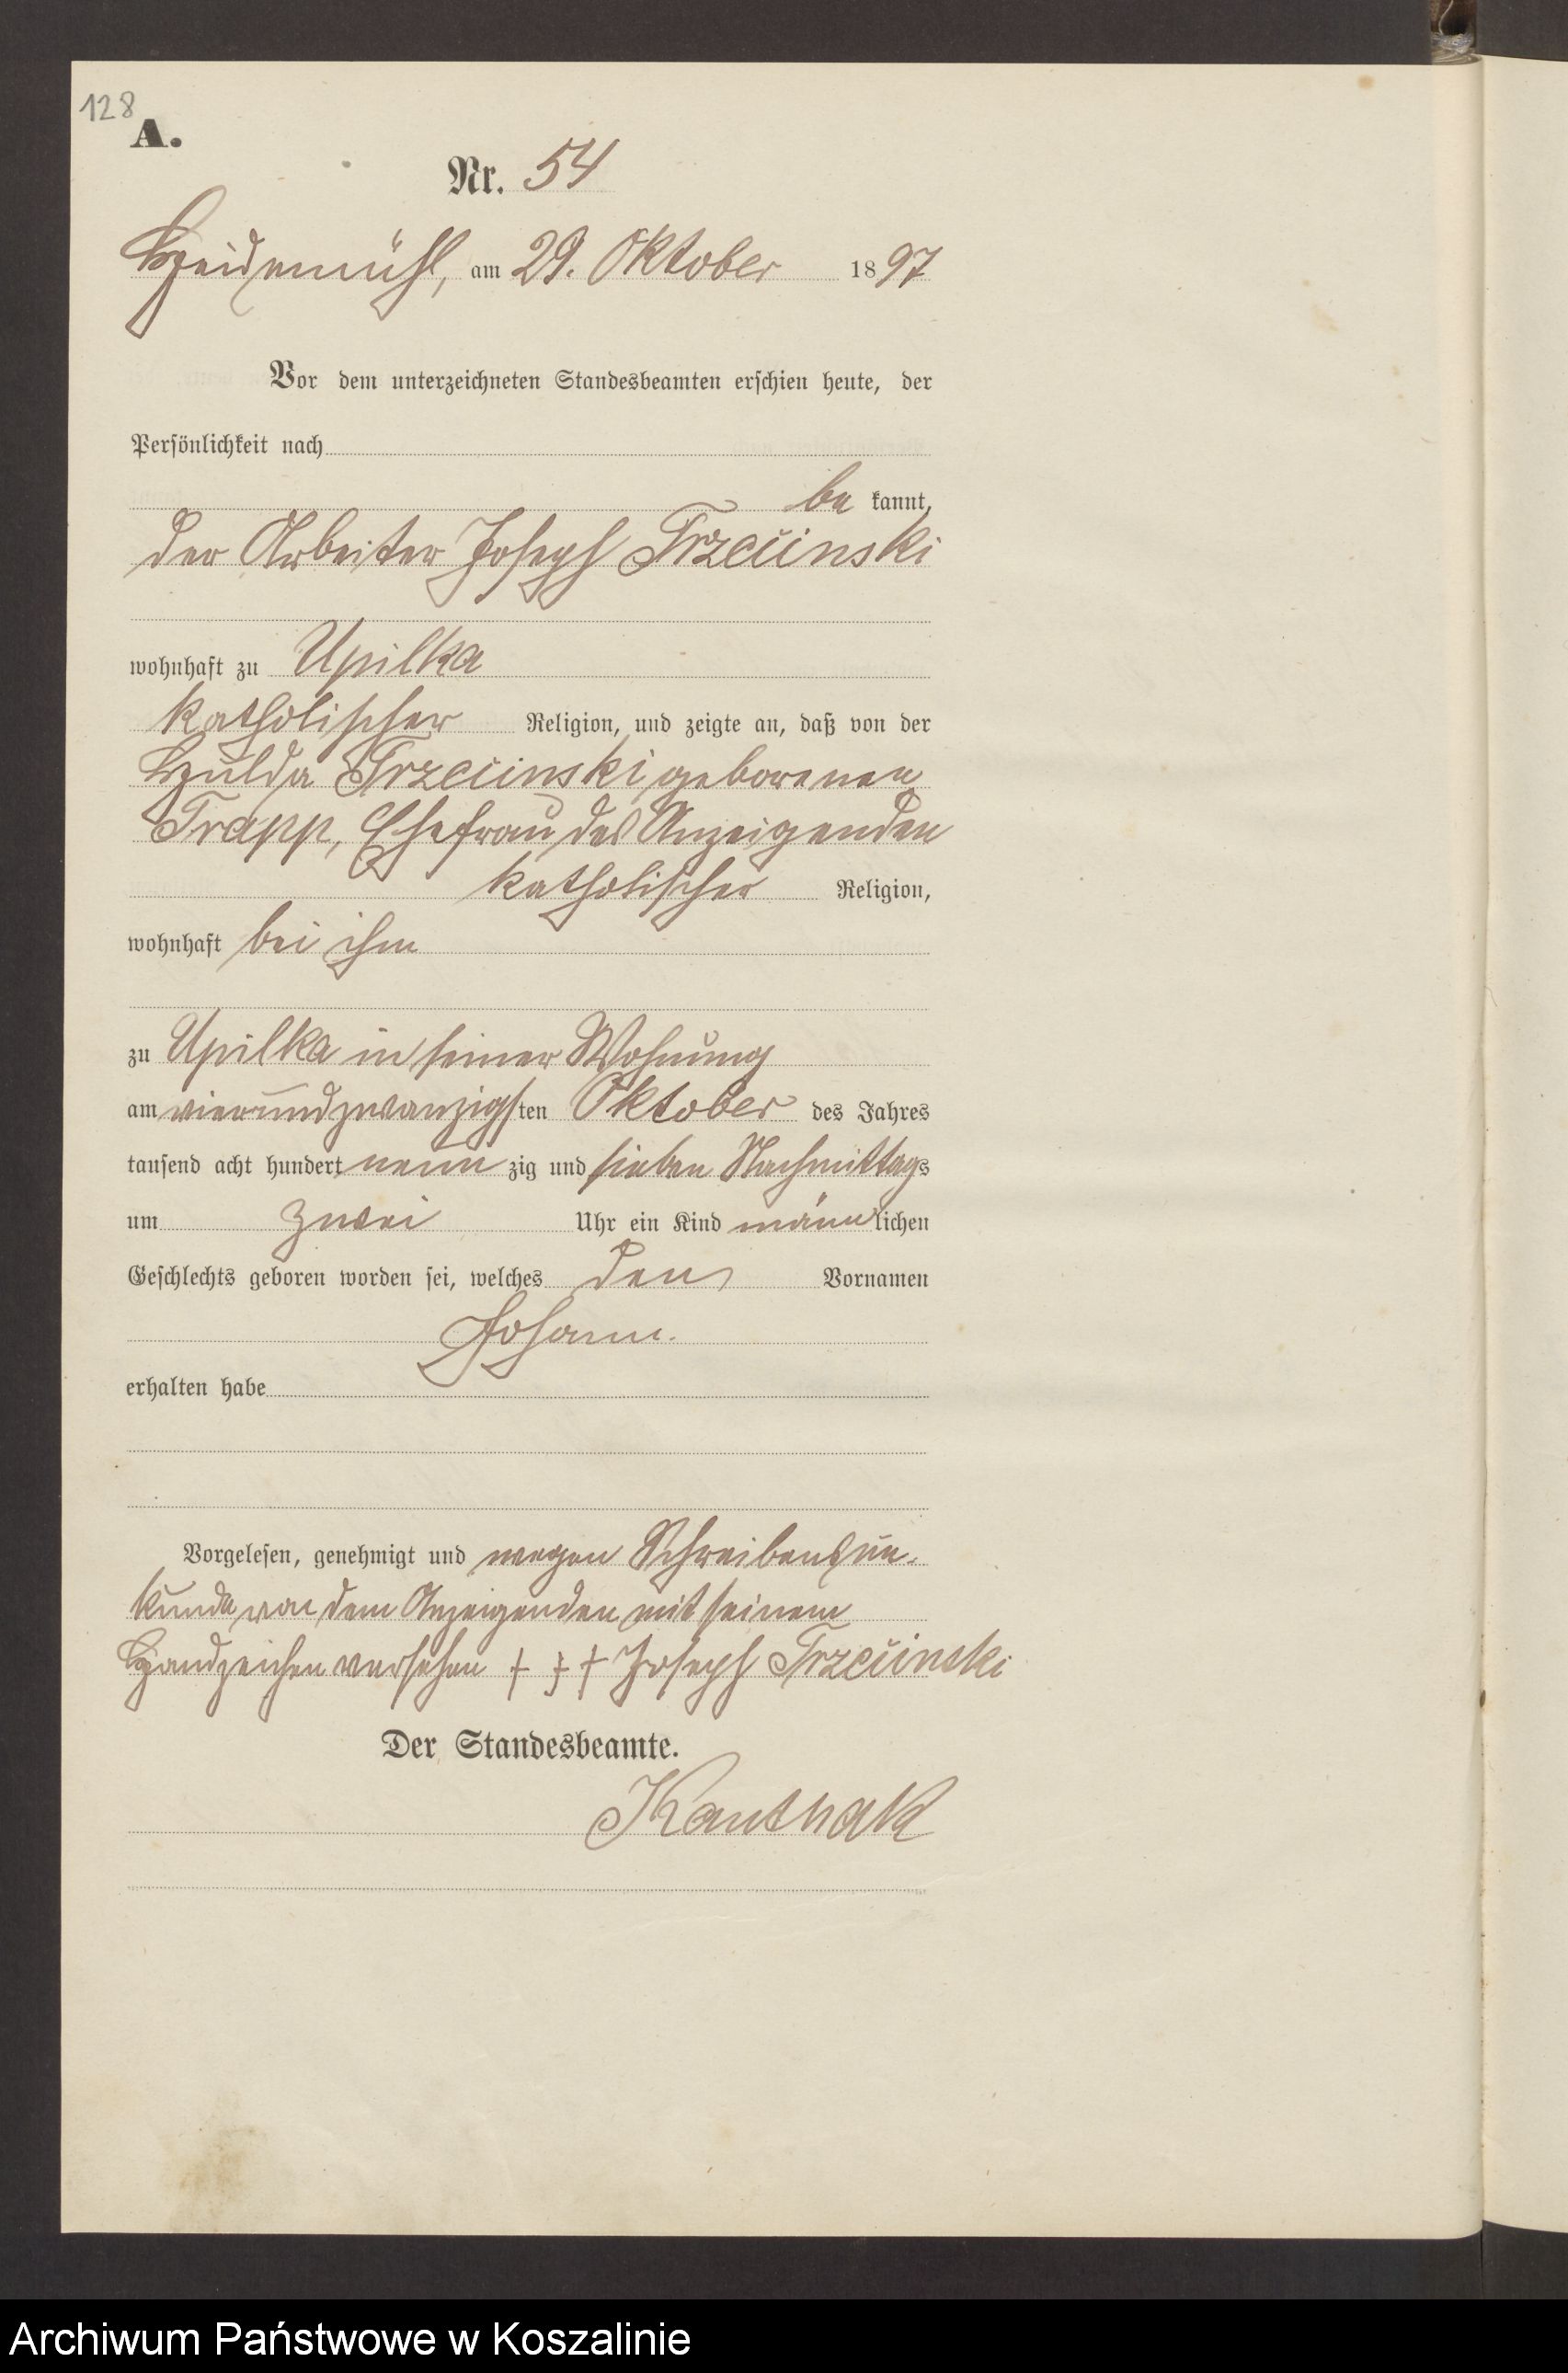 128
A.
Nr. 54
Heidemühl, am 29. Oktober 1897
Vor dem unterzeichneten Standesbeamten erschien heute, der
Persönlichkeit nach
be kannt,
der Arbeiter Joseph Trzciinski
wohnhaft zu Upilka
katholischer Religion, und zeigte an, daß von der
Hulda Trzciinski geborenen
Trapp, Ehefrau des Anzeigenden
katholischer Religion,
wohnhaft bei ihm
zu Upilka in seiner Wohnung
am vierundzwanzigsten Oktober des Jahres
tausend acht hundert neunzig und sieben Nachmittags
um zwei Uhr ein Kind männlichen
Geschlechts geboren worden sei, welches den Vornamen
Johann.
erhalten habe
Vorgelesen, genehmigt und wegen Schreibensun-
kunde von dem Anzeigenden mit seinem
Handzeichen versehen + + + Joseph Trzciinski
Der Standesbeamte.
Kanthak
Archiwum Państwowe w Koszalinie